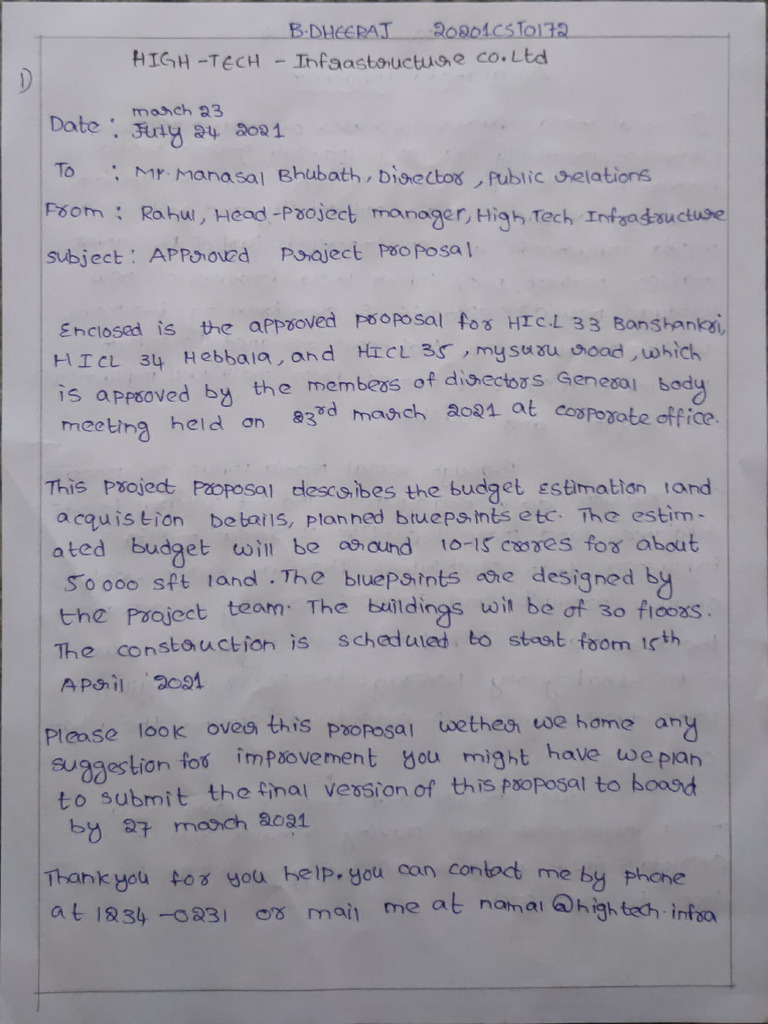 B.DHEERAJ 20201CST0172
HIGH-TECH - Infrastructure co.Ltd
1)
march 23
Date : July 24 2021
To : Mr. Manasal Bhubath, Director, Public relations
From : Rahul, Head-Project manager, High Tech Infrastructure
Subject : APProved Project Proposal
Enclosed is the approved proposal for HIC.L 33 Banshankri,
HICL 34 Hebbala, and HICL 35, mysuru road, which
is approved by the members of directors General body
meeting held on 23rd march 2021 at corporate office.
This Project Proposal describes the budget Estimation land
acquistion Details, planned blueprints etc. The estim-
ated budget will be around 10-15 crores for about
50000 sft land. The blueprints are designed by
the Project team. The buildings will be of 30 floors.
The construction is scheduled to start from 15th
April 2021
Please look over this proposal wether we home any
suggestion for improvement you might have we plan
to submit the final version of this proposal to board
by 27 march 2021
Thank you for you help. you can contact me by phone
at 1234-0231 or mail me at nama1@hightech.infra